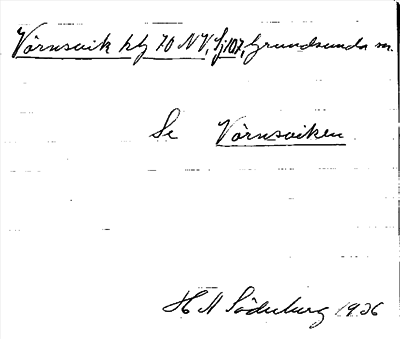 Vårnsvik hlg 70 NV, Sj 107, Grundsunda sn.
Se Vårnsviken
H N Söderberg 1936